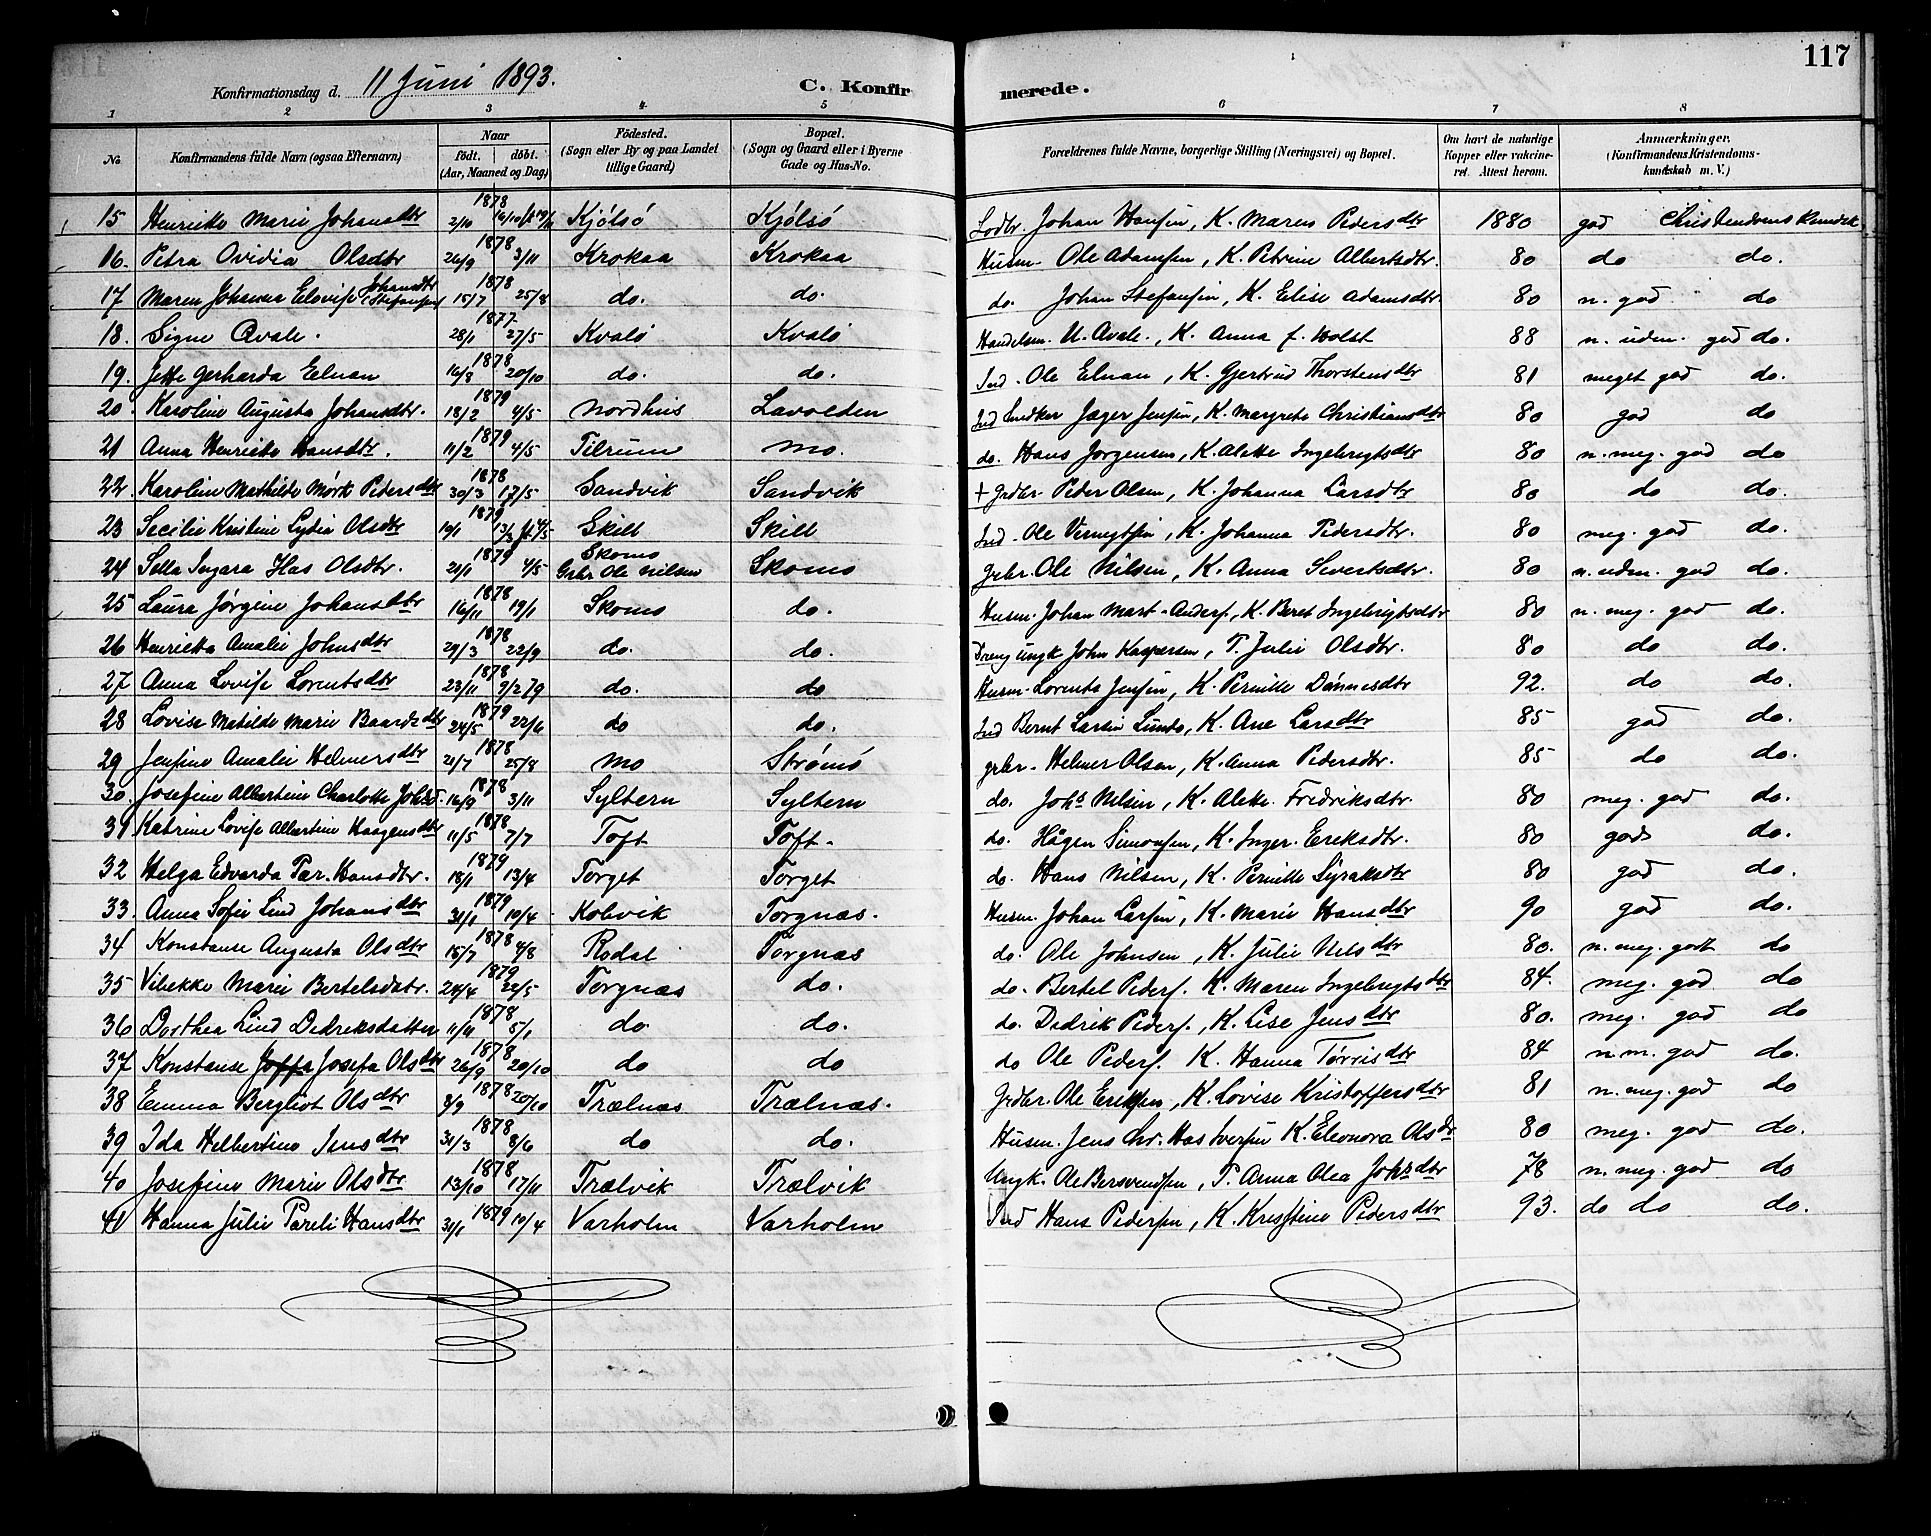 117
Konfirmationsdag d. 11 Juni 1893. C. Konfirmerede.
1 2 3 4 5 6 7 8
No. Konfirmandens fulde Navn (ogsaa Efternavn) Naar födt. döbt. (Aar, Maaned og Dag) Födested. (Sogn eller By og paa Landet tillige Gaard) Bopæl. (Sogn og Gaard eller i Byerne Gade og Hus-No. Forældrenes fulde Navne, borgerlige Stilling (Næringsvei) og Bopæl. Om havt de naturlige Kopper eller vakcineret. Attest herom. Anmærkninger, (Konfirmandens Kristendomskundskab m. V.)
15 Henrikke Marie Johansdtr 1878 2/10 Kjölsö Kjölsö Johan Hansen, K. Maren Pedersdtr 1880 god Christendomskundsk
16. Petra Ovidia Olsdtr 1878 26/9 3/11 Krokaa Krokaa Husm. Ole Adamsen, K. Petrine Albertsdtr. 80 do do.
17 Maren Johanna Elovise Johansdtr (Stefansen) 1878 15/7 25/8 do. do. do. Johan Stefansen, K. Elise Adamsdtr 80 n. god do
18. Signe Qvale. 1877 28/1 27/5 Kvalö Kvalö Handelsm. U. Qvale., K. Anna f. Holst 88 n. udm. god do.
19. Jette Gerharda Elnan 1878 16/8 20/10 do. do. Ind. Ole Elnan, K. Gjertrud Thorstensdtr 81 meget god do.
20. Karoline Augusta Johansdtr. 1879 18/2 4/5 Nordhus Lavolden Ind Jæger Jensen, K. Margrete Christiansdtr 80 god do
21 Anna Henrikke Hansdtr. 1879 11/2 4/5 Tilrum Mo. do. Hans Jörgensen, K. Alette Ingebrigtsdtr 80 n. meg. god do
22 Karoline Mathilde Mörk Pedersdtr 1878 30/3 17/5 Sandvik Sandvik + grdbr. Peder Olsen, K. Johanna Larsdtr 80 do do.
23 Secilie Kristine Lydia Olsdtr 1879 19/1 Skilt Skilt Ind. Ole K. Johanna Pedersdtr. 80 meg. god do.
24 Sella Ingara Has Olsdtr. 1879 21/1 4/5 Skomo Grbr Ole Nilsen Skomo Grbr. Ole Nilsen, K. Anna Sivertsdtr. 80 n. udm. god do.
25 Laura Jörgine Johansdtr 1878 16/11 19/1 Skomo do. Husm. Johan Mart. Anders., K. Beret Ingebrigtsdtr 80 n. meg. god do.
26 Henrietta Amalie Johnsdtr 1878 29/3 22/9 do. do. Dreng ungk John Kaspersen, P. Julie Olsdtr. 80 do do.
27 Anna Lovise Lorentsdtr 1878 23/11 9/2 79 do. do Husm. Lorents Jensen, K. Pernille Dánnesdtr 92. do do.
28 Lovise Matilde Marie Baardsdtr 1879 24/5 22/6 do do. Ind Bernt Larsen Sund, K. Ane Larsdtr 85 god do.
29 Jensine Amalie Helmersdtr 1878 21/7 25/8 Mo Strömö grbr. Helmer Olsen, K. Anna Pedersdtr. 85 do do.
30. Josefine Albertine Charlotte Johsd. 1878 16/9 3/11 Syltern Syltern do. Johs Nilsen, K. Alette Fredriksdtr. 80 meg. god do.
31 Katrine Lovise Albertine Haagensdtr 1878 11/5 7/7 Toft Toft. do. Hågen Simonsen, K. Inger Eriksdtr. 80 god do.
32 Helga Edvarda Pær. Hansdtr. 1879 18/1 13/4 Torget Torget do. Hans Nilsen, K. Pernille Syraksdtr 80 god do.
33. Anna Sofie Lind Johansdtr 1879 31/1 10/4 Kolvik Torgnæs. Husm. Johan Larsen, K. Marie Hansdtr 90 god do.
34 Konstanse Augusta Olsdtr 1878 15/7 4/8 Rodal Torgnæs do. Ole Johnsen, K. Julie Nilsdtr 80. n. meg. godt do
35 Vibekke Marie Bertelsdatr. 1879 24/4 22/5 Torgnæs do. do. Bertel Peders. K. Maren Ingebrigtsdtr 84. meg. god do
36 Dorthea Lind Dedreksdatter 1878 11/11 5/1 do do. do. Dedrik Peders., K. Lise Jensdtr 80. meg. god do
37 Konstanse Joffa Josefa Olsdtr 1878 26/9 20/10 do do do Ole Peders. K. Hanna Törrisdtr 84 n. m. god do.
38 Emma Bergliot Olsdtr 1878 8/9 20/10 Trælnæs Trælnæs. Grdbr. Ole Eriksen, K. Lovise Kristoffersdtr 81 n. meg. god do
39 Ida Helbertine Jensdtr 1878 31/3 8/6 do do. Husm. Jens Chr. Has Iversen K. Eleonora Olsdr 80 meg. god do.
40 Josefine Marie Olsdtr 1878 13/10 17/11 Trælvik Trælvik Ungk. Ole Bersvendsen, P. Anna Olea Johsdtr 78 n. meg. god do
41 Hanna Julie Pareli Hansdtr 1879 31/1 10/4 Varholm Varholm Ind Hans Pedersen, K. Kristine Pedersdtr 93. do do do.